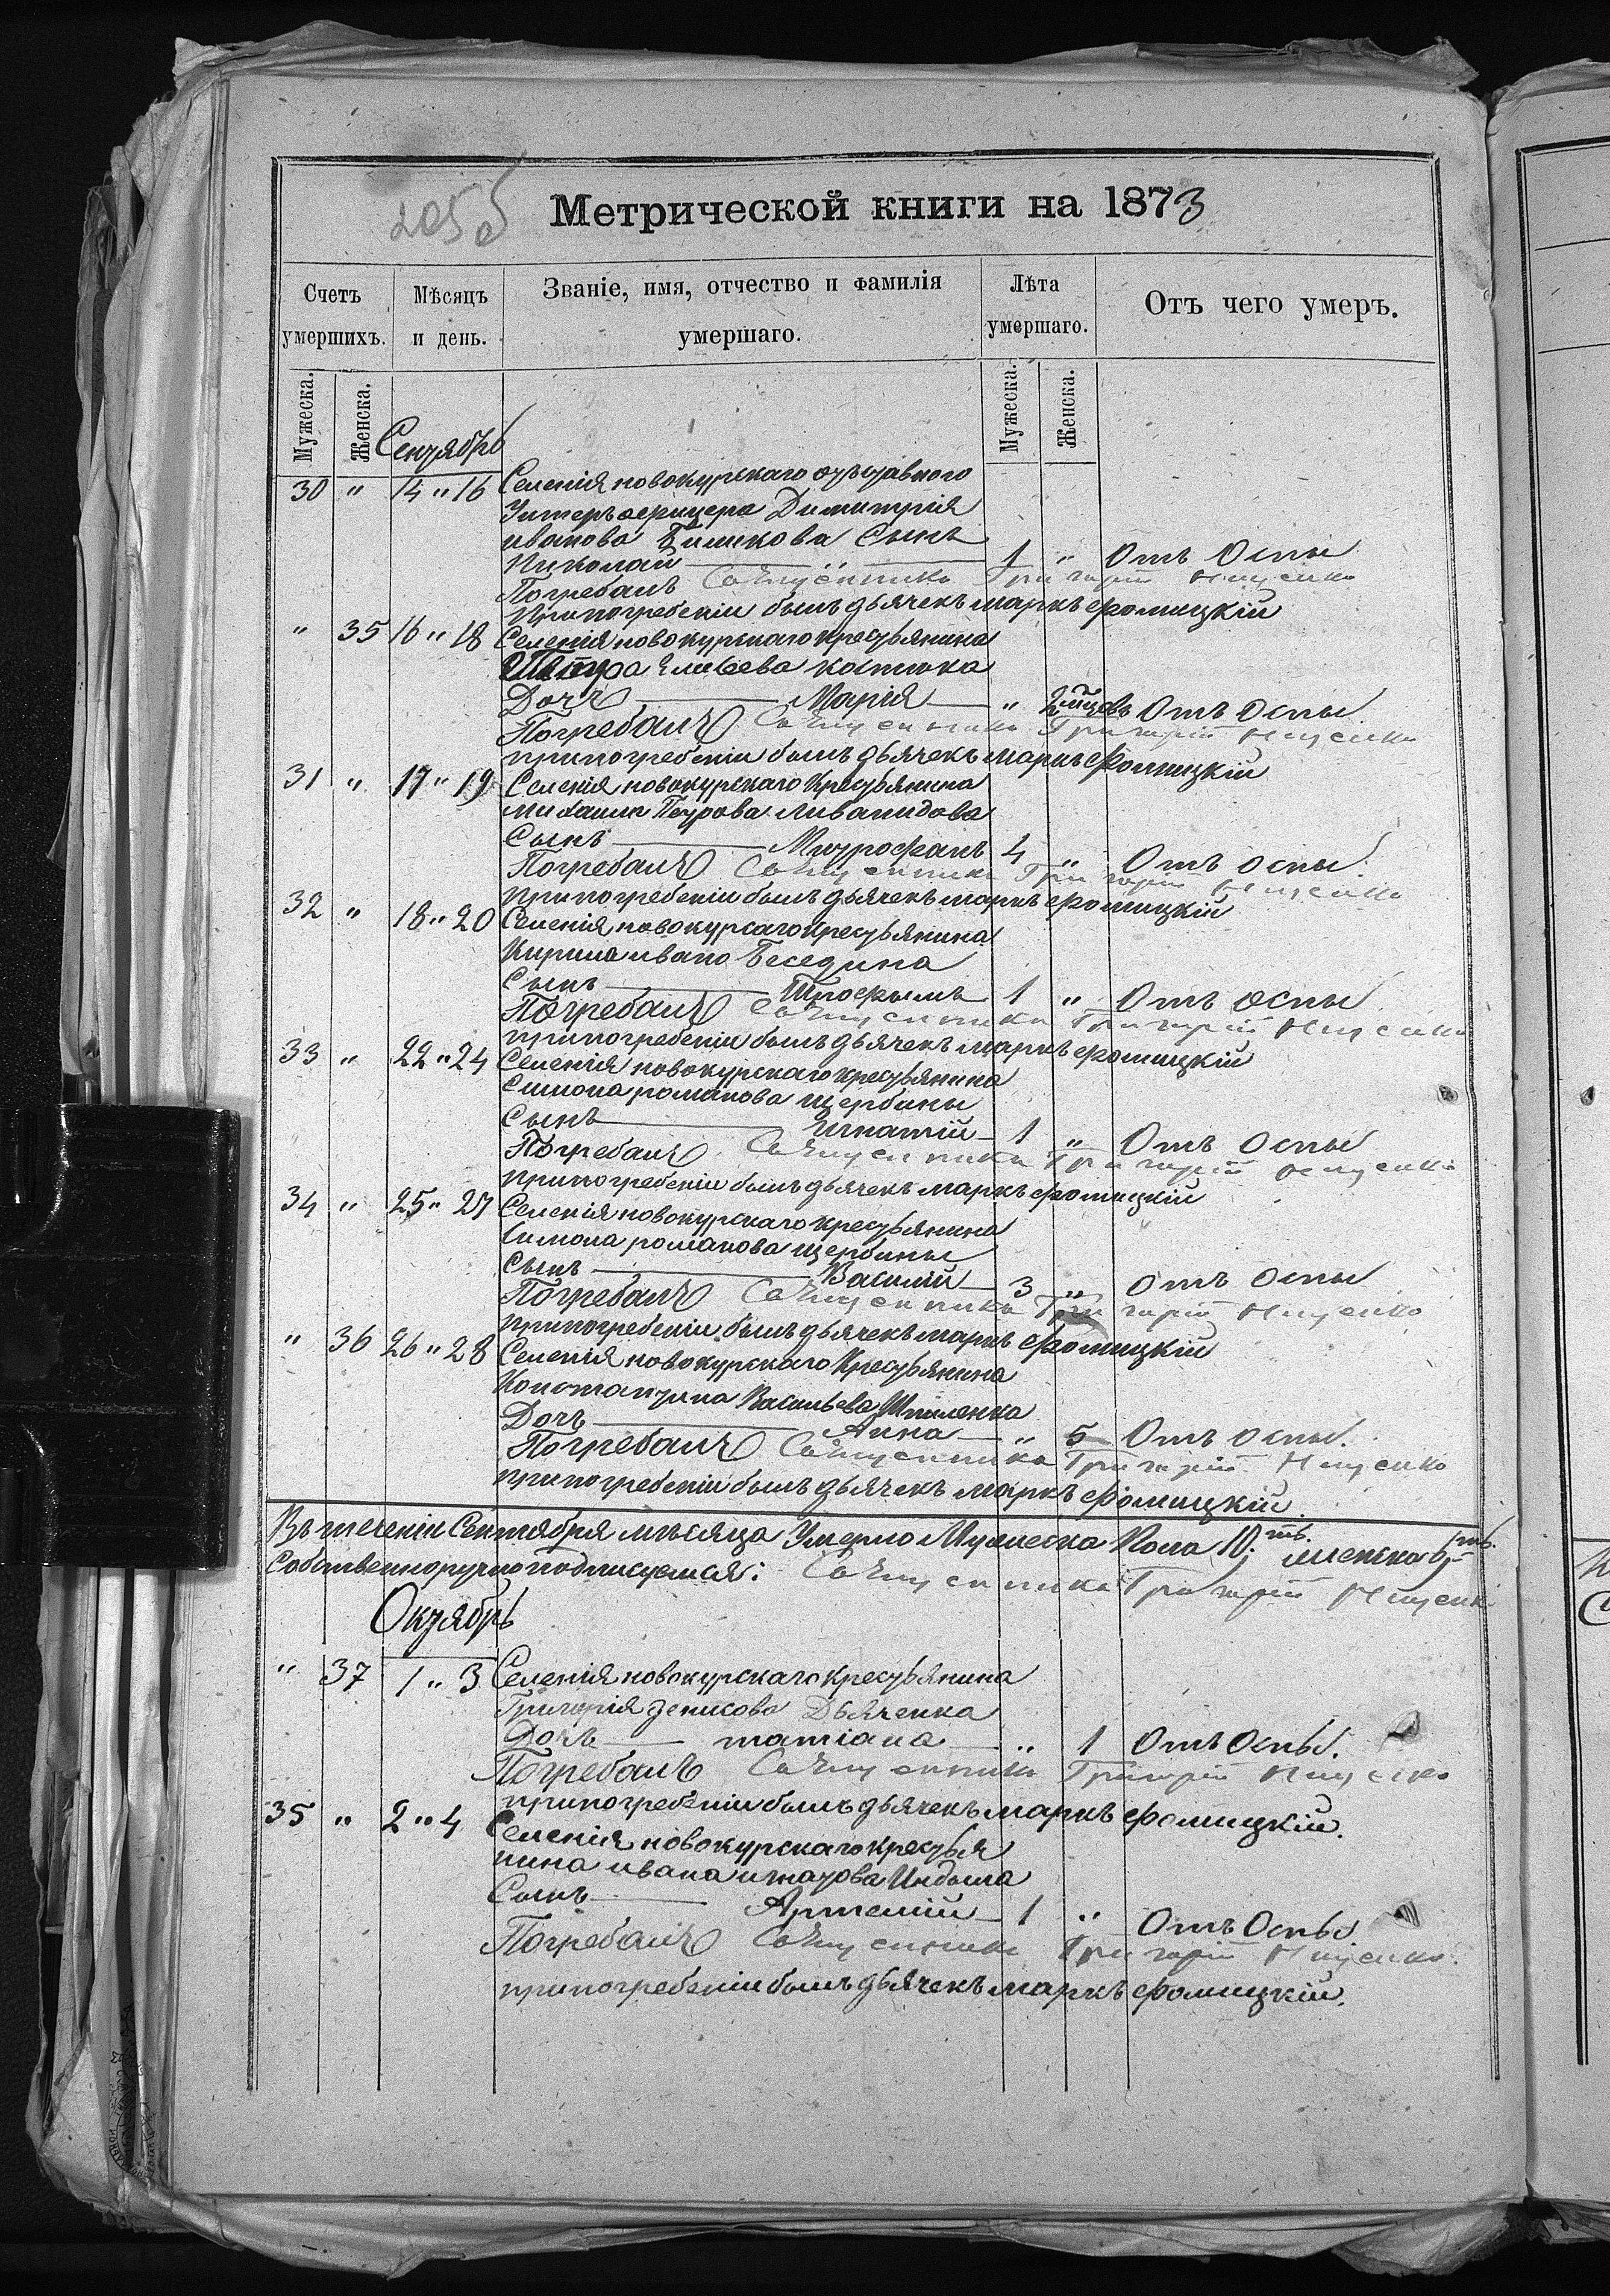 205 об
Метрической книги на 1873
Счетъ умершихъ.
Мѣсяцъ и день.
Званіе, имя, отчество и фамилія умершаго.
Лѣта умершаго.
Отъ чего умеръ.
Мужеска. Женска.
Мужеска. Женска.
Сентябрь
30 " 14 " 16 Селенія новокурскаго отъставного
Унтеръ офицера Димитрія
иванова Сынъ
Николай 1 " Отъ Оспы
Погребалъ Священника Григорій
При погребеніи былъ дьячекъ маркъ фомицкій
" 35 16 " 18 Селенія новокурскаго крестьянина
Петра Елисеева костюка
Дочь Марія " 2 мцовъ Отъ Оспы.
Погребалъ Священника Григорій
при погребеніи былъ дьячекъ маркъ фомицкій
31 " 17 " 19 Селенія новокурскаго крестьянина
михаила Петрова ливамидова
Сынъ Митрофанъ 4 " Отъ оспы.
Погребалъ Священника Григорій
при погребеніи былъ дьячекъ маркъ фомицкій
32 " 18 " 20 Селенія новокурсаго крестьянина
Кирила ивано Беседина
Сынъ 1 " Отъ оспы
Погребалъ Священника Григорій
при погребеніи былъ дьячекъ маркъ фомицкій
33 " 22 " 24 Селенія новокурскаго крестьянина
Симона романова щербины
Сынъ Игнатій 1 " Отъ Оспы
Погребалъ Священника Григорій
при погребеніи былъ дьячекъ маркъ фомицкій
34 " 25 " 27 Селенія новокурскаго крестьянина
Симона романова щербины
Сынъ Василій 3 " Отъ Оспы
Погребалъ Священника Григорій
при погребеніи былъ дьячекъ маркъ фомицкій
" 36 26 " 28 Селенія новокурскаго Крестьянина
Константина Васильева Шпиленка
Дочь Анна " 5 Отъ оспы.
Погребалъ Священника Григорій
при погребеніи былъ дьячекъ маркъ фомицкій
Въ теченіи Сентября мѣсяца Умерло Мужеска Пола 10.ть женска
Собственноручно подписуемся: Священника Григорій
Октябрь
" 37 1 " 3 Селенія новокурскаго крестьянина
Григорія Денисова Дьяченка
Дочь татіана " 1 Отъ Оспы.
Погребалъ Священника Григорій
при погребеніи былъ дьячекъ маркъ фомицкій.
35 " 2 " 4 Селенія новокурскаго крестья
нина ивана игнатова Индыла
Сынъ Артемій 1 " Отъ Оспы
Погребалъ Священника Григорій
при погребеніи былъ дьячекъ маркъ фомицкій.